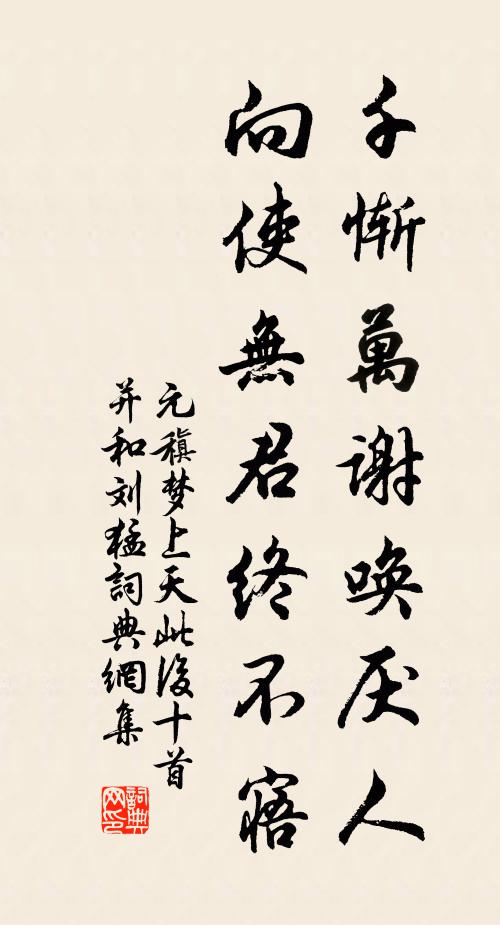 千慚萬謝喚厌人
向使無君終不寤
元稹梦上天此後十首
并和刘猛詞典網集
詞典网印